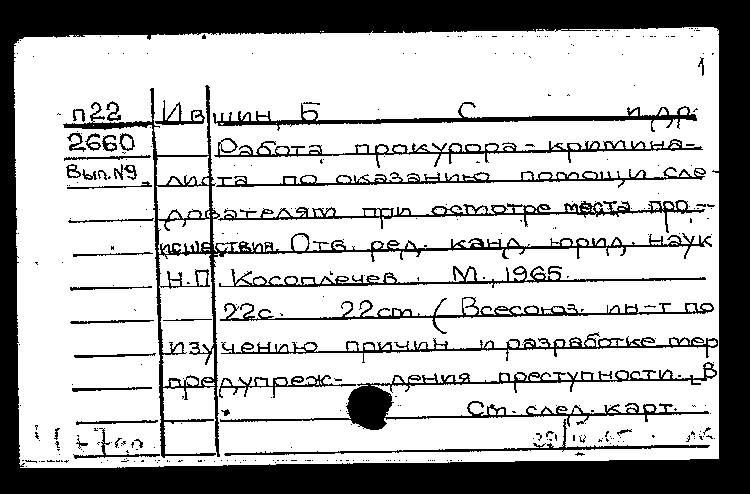 1
п22 Ившин, Б С и др.
2660 Работа прокурора-кримина-
Вып.№9 листа по оказанию помощи сле-
дователям при осмотре места про-
исшествия. Отв. ред. канд. юрид. наук
Н.П. Косоплечев. М., 1965.
22с. 22см. (Всесоюз. ин-т по
изучению причин и разработке мер
предупреж- дения преступности. В
См. след. карт.